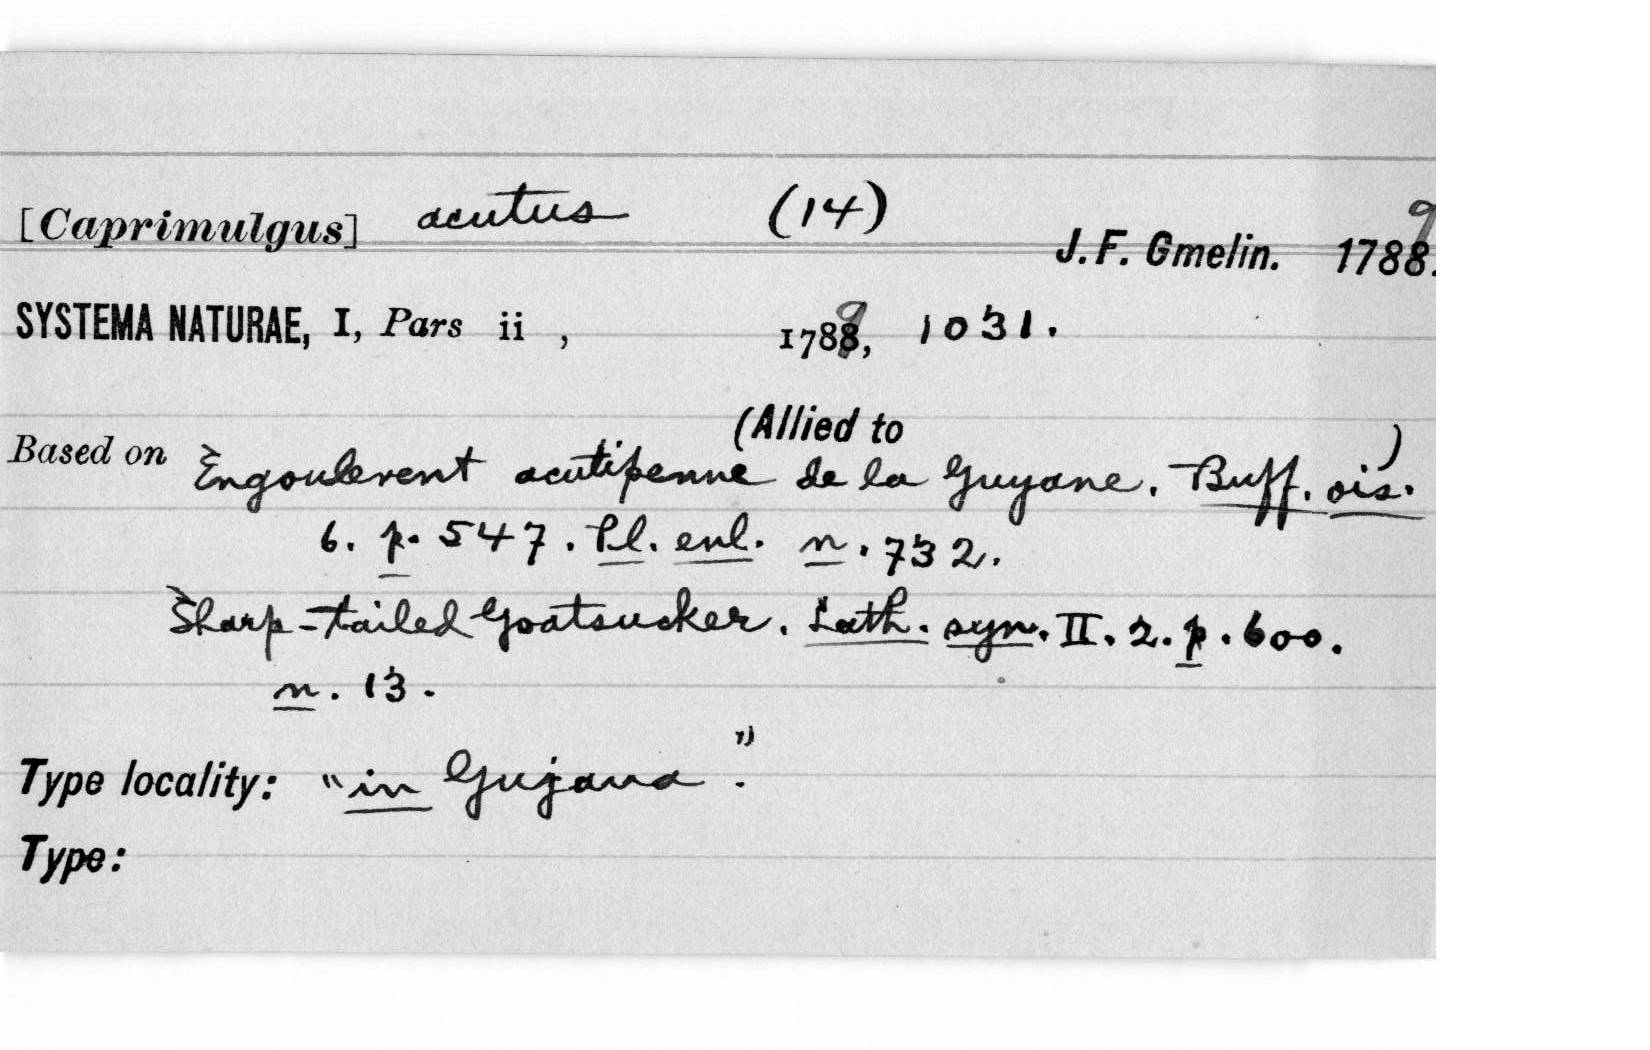 [Caprimulgus] acutus (14) J. F. Gmelin. 1789.
SYSTEMA NATURAE, I, Pars ii , 1789, 1031.
(Allied to )
Based on Engoulevent acutipenne de la Guyane. Buff. ois.
6. p. 547. Pl. enl. n. 732.
Sharp-tailed Goatsucker. Lath. syn. II. 2. p. 600.
n. 13.
Type locality: "in Gujana".
Type: